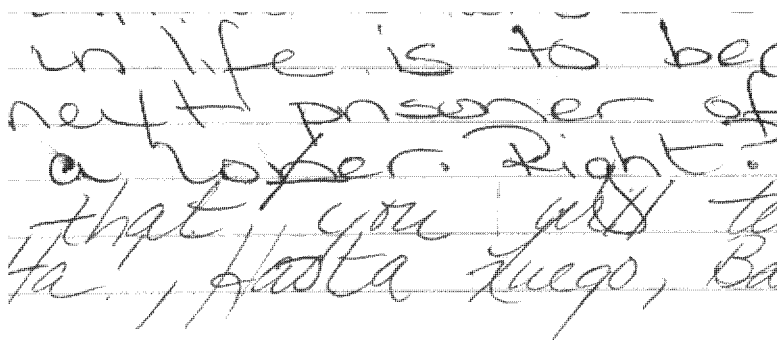 in life is to bec
next prisoner of
a hoper. Right.
that, you will te
Ha., Hasta Luego, Ba